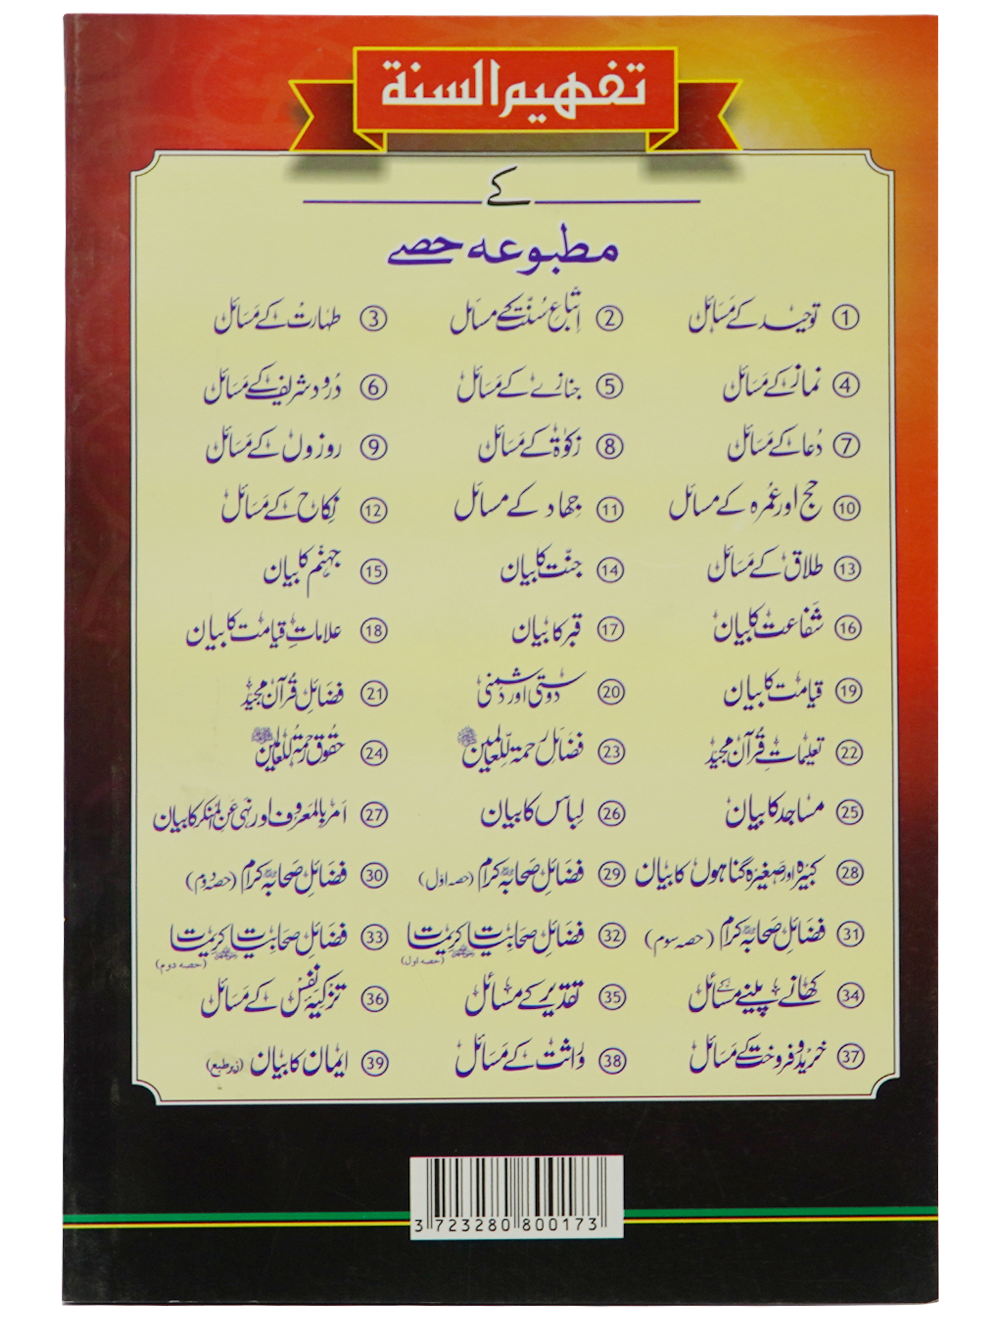 تفہیم السنة
کے
مطبوعہ حصے
① توحید کے مسائل ② اتباعِ سُنّت کے مسائل ③ طہارت کے مسائل
④ نماز کے مسائل ⑤ جنازے کے مسائل ⑥ دُرود شریف کے مسائل
⑦ دُعا کے مسائل ⑧ زکوٰۃ کے مسائل ⑨ روزوں کے مسائل
⑩ حج اور عُمرہ کے مسائل ⑪ جہاد کے مسائل ⑫ نکاح کے مسائل
⑬ طلاق کے مسائل ⑭ جنّت کا بیان ⑮ جہنّم کا بیان
⑯ شفاعت کا بیان ⑰ قبر کا بیان ⑱ علاماتِ قیامت کا بیان
⑲ قیامت کا بیان ⑳ دوستی اور دُشمنی ㉑ فضائلِ قُرآن مجید
㉒ تعلیماتِ قُرآن مجید ㉓ فضائل رحمۃ لِّلعالمین ﷺ ㉔ حقوق رحمۃ لِّلعالمین ﷺ
㉕ مساجد کا بیان ㉖ لباس کا بیان ㉗ امر بالمعروف اور نہی عن المنکر کا بیان
㉘ کبیرہ اور صغیرہ گناہوں کا بیان ㉙ فضائلِ صحابہ کرام (حصہ اول) ㉚ فضائلِ صحابہ کرام (حصہ دوم)
㉛ فضائلِ صحابہ کرام (حصہ سوم) ㉜ فضائلِ صحابیات کریمات (حصہ اول) ㉝ فضائلِ صحابیات کریمات (حصہ دوم)
㉞ کھانے پینے کے مسائل ㉟ تقدیر کے مسائل ㊱ تزکیہ نفس کے مسائل
㊲ خرید و فروخت کے مسائل ㊳ وراثت کے مسائل ㊴ ایمان کا بیان (زیر طبع)
3 723280 800173